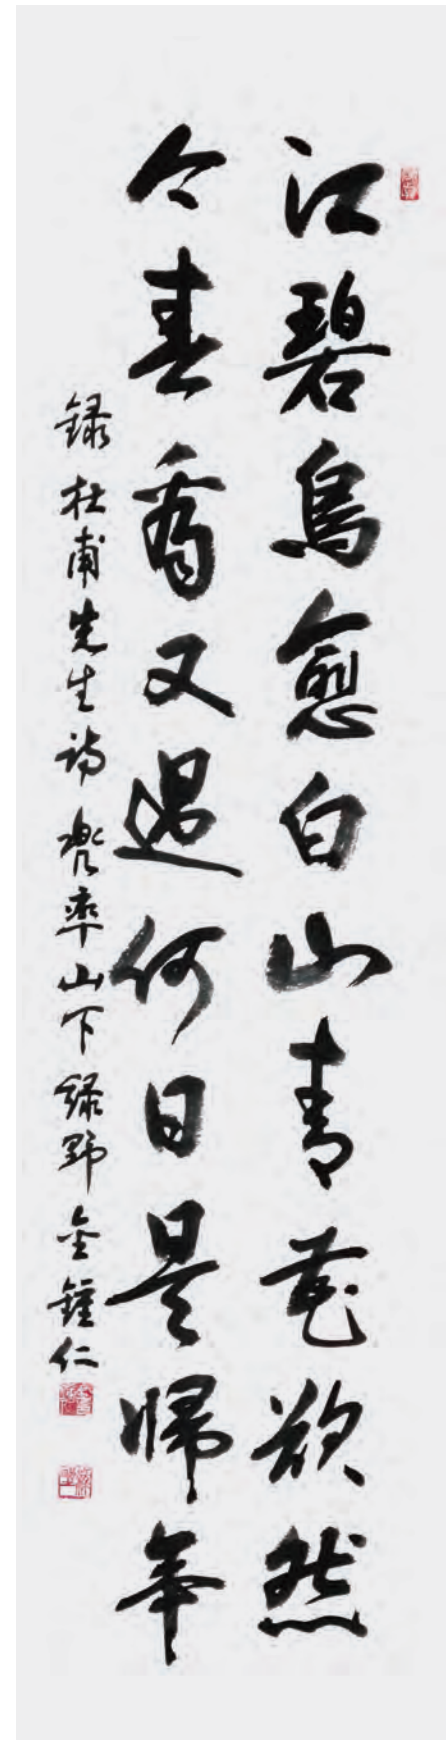 江碧鳥愈白山青花欲然
今春看又過何日是歸年
録杜甫先生詩 兜率山下 緑野 金鍾仁